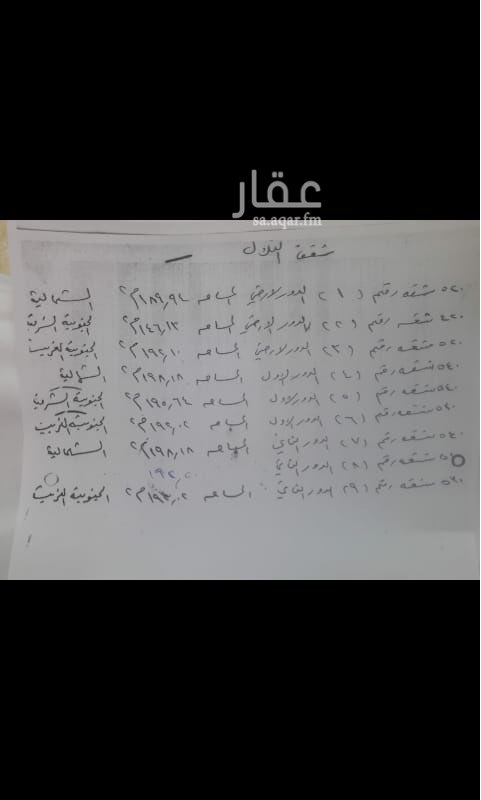 عقار
sa.aqar.fm
شقق التلال
٥٢٠ شقه رقم (١) الدور الارضي المساحه ١٨٩,٩٤م٢ الشمالية
٤٢٠ شقه رقم (٢) الدور الارضي المساحه ١٤٦,١٣م٢ الجنوبية الشرقية
٥٢٠ شقه رقم (٣) الدور الارضي المساحه ١٩٢,١٠م٢ الجنوبية الغربية
٥٤٠ شقه رقم (٤) الدور الاول المساحه ١٩٨,١٨م٢ الشمالية
٥٤٠ شقه رقم (٥) الدور الاول المساحه ١٩٥,٦٤م٢ الجنوبية الشرقية
شقه رقم (٦) الدور الاول المساحه ١٩٢,٠٢م٢ الجنوبية الغربية
٥٤٠ شقه رقم (٧) الدور الثاني المساحه ١٩٨,١٨م٢ الشمالية
شقه رقم (٨) الدور الثاني
شقه رقم (٩) الدور الثاني المساحه م٢ الجنوبية الغربية